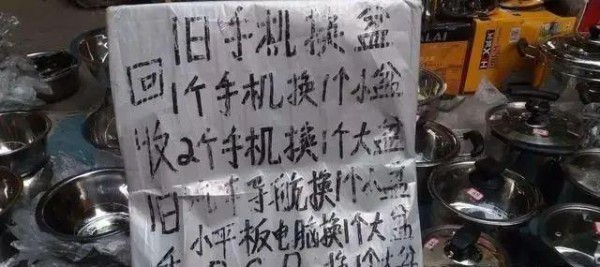 旧手机换盆
回 1个手机换1个小盆
收 2个手机换1个大盆
旧 汽车导航换1个小盆
小平板电脑换1个大盆
手 换1个大盆
LAI